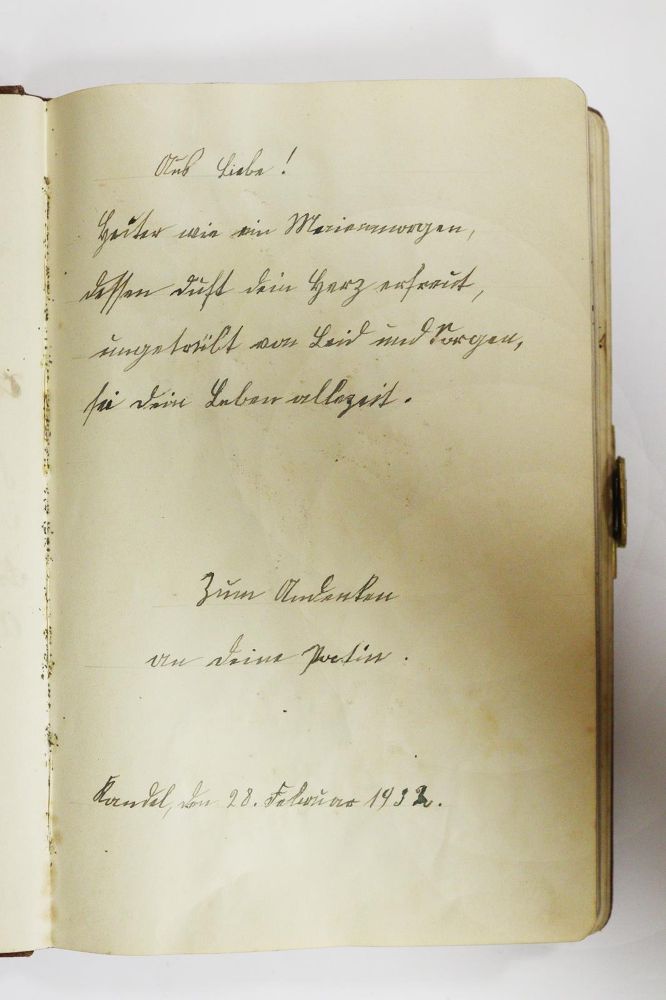 Aus Liebe!
Heiter wie ein Maienmorgen,
dessen Duft dein Herz erfreut,
ungetrübt von Leid und Sorgen,
sei dein Leben allezeit.
Zum Andenken
an deine Patin.
Kandel, den 28. Februar 1932.